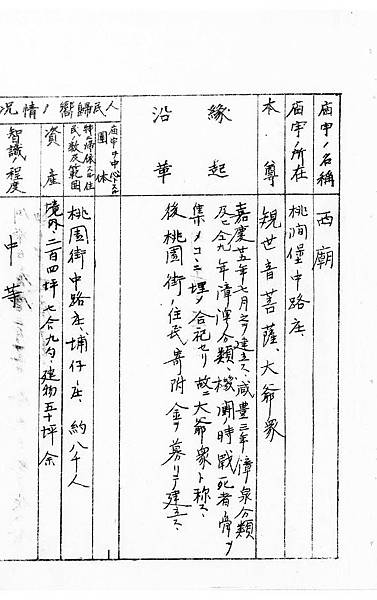 廟宇ノ名稱 西廟
廟宇ノ所在 桃澗堡中路庄
本尊 観世音菩薩、大爺衆
縁起 沿革
嘉慶十五年七月之ヲ建立ス、咸豊三年漳泉分類
及ヒ仝九年漳渾分類、機関時戦死者骨ヲ
集メコニ埋メ合祀セリ故ニ大爺衆ト称ス、
後桃園街ノ住民寄附金ヲ募リテ建立ス
人民歸嚮ノ情況
廟宇ヲ中心トスル團体
特ニ帰依スル住民ノ数及範圍 桃園街中路庄、埔仔庄、約八千人
資産 境外二百四坪七合九勺、建物五十坪余
智識ノ程度 中等